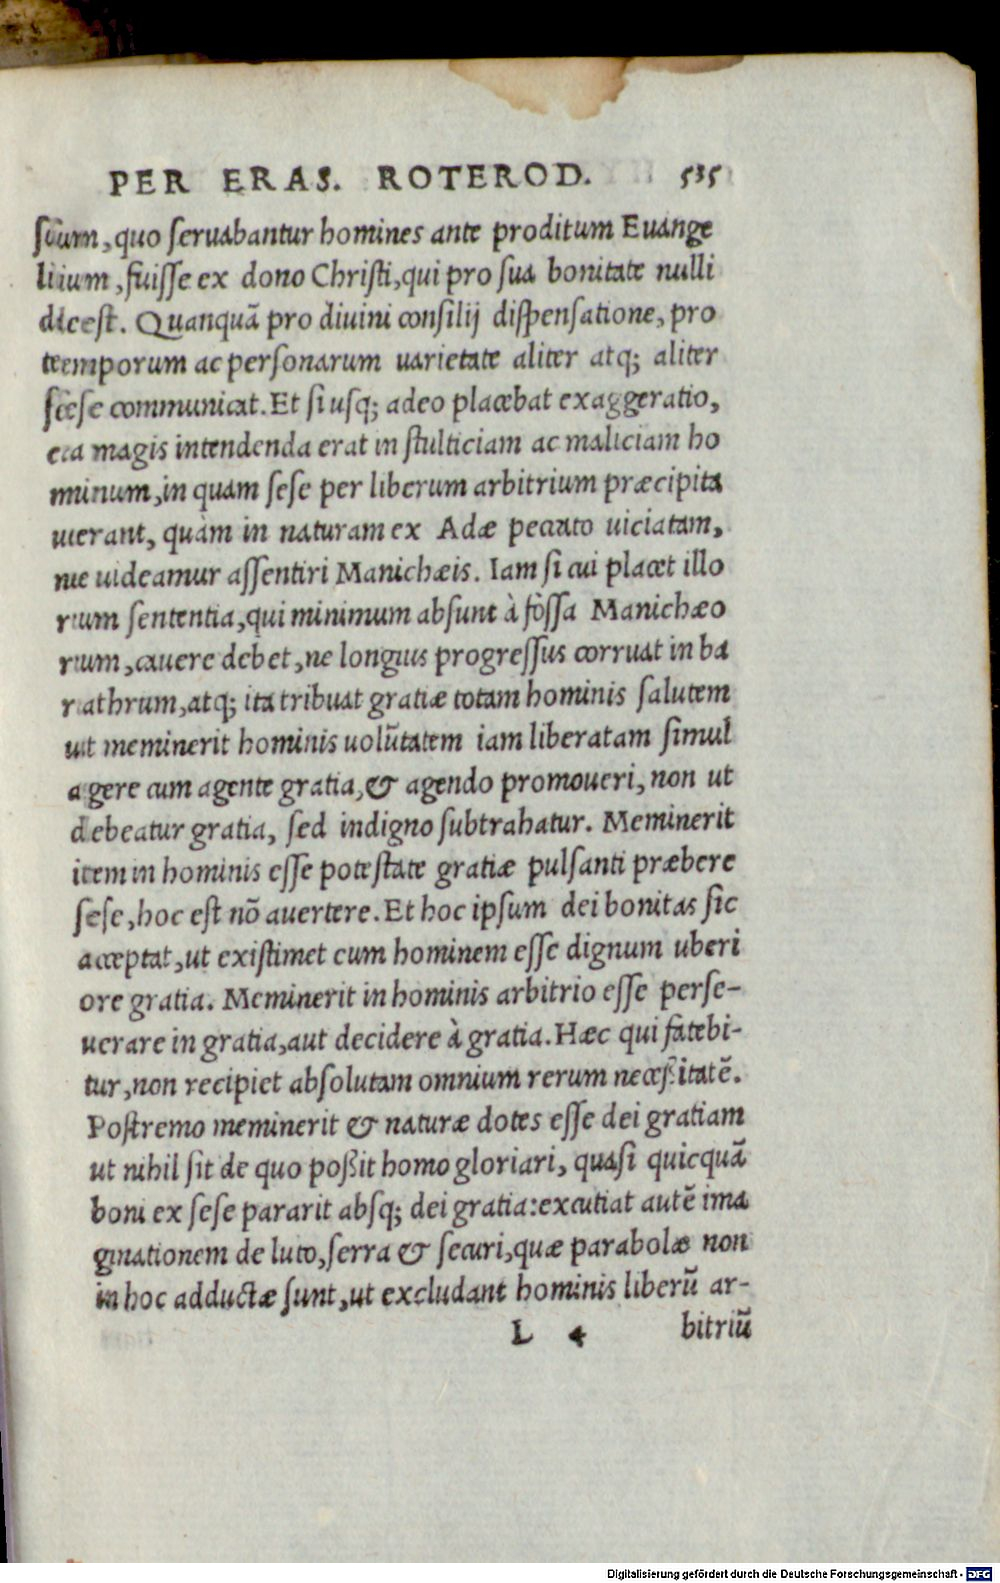 PER ERAS. ROTEROD. 535
suum, quo seruabantur homines ante proditum Euange
lium, fuisse ex dono Christi, qui pro sua bonitate nulli
deest. Quanquã pro diuini consilij dispensatione, pro
temporum ac personarum uarietate aliter atq; aliter
sese communicat. Et si usq; adeo placebat exaggeratio,
ea magis intendenda erat in stulticiam ac maliciam ho
minum, in quam sese per liberum arbitrium præcipita
uerant, quàm in naturam ex Adæ peccato uiciatam,
ne uideamur assentiri Manichæis. Iam si cui placet illo
rum sententia, qui minimum absunt à fossa Manichæo
rum, cauere debet, ne longius progressus corruat in ba
rathrum, atq; ita tribuat gratiæ totam hominis salutem
ut meminerit hominis uolũtatem iam liberatam simul
agere cum agente gratia, & agendo promoueri, non ut
debeatur gratia, sed indigno subtrahatur. Meminerit
item in hominis esse potestate gratiæ pulsanti præbere
sese, hoc est nõ auertere. Et hoc ipsum dei bonitas sic
acceptat, ut existimet eum hominem esse dignum uberi
ore gratia. Meminerit in hominis arbitrio esse perse-
uerare in gratia, aut decidere à gratia. Hæc qui fatebi-
tur, non recipiet absolutam omnium rerum neceßitatẽ.
Postremo meminerit & naturæ dotes esse dei gratiam
ut nihil sit de quo poßit homo gloriari, quasi quicquã
boni ex sese pararit absq; dei gratia: excutiat autẽ ima
ginationem de luto, serra & securi, quæ parabolæ non
in hoc adductæ sunt, ut excludant hominis liberũ ar-
L 4 bitriũ
Digitalisierung gefördert durch die Deutsche Forschungsgemeinschaft - DFG